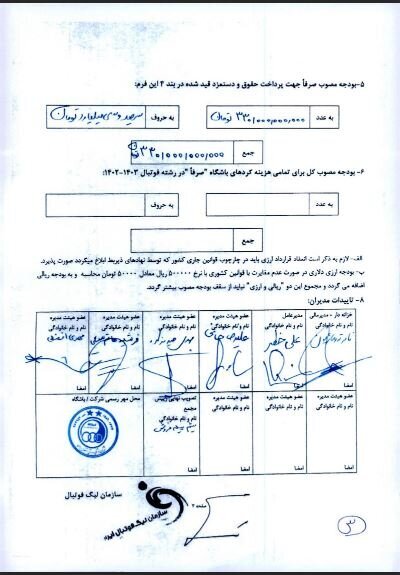 ۵-بودجه مصوب صرفاً جهت پرداخت حقوق و دستمزد قید شده در بند ۴ این فرم:
به عدد ۳۳۰/۰۰۰/۰۰۰/۰۰۰ تومان به حروف سیصد و سی میلیارد تومان
جمع ۳۳۰/۰۰۰/۰۰۰/۰۰۰
۶-بودجه مصوب کل برای تمامی هزینه کردهای باشگاه "صرفاً" در رشته فوتبال ۱۴۰۳-۱۴۰۲:
به عدد به حروف
جمع
الف- لازم به ذکر است انعقاد قرارداد ارزی باید در چارچوب قوانین جاری کشور که توسط نهادهای ذیربط ابلاغ میگردد صورت پذیرد.
ب- بودجه ارزی دلاری در صورت عدم مغایرت با قوانین کشوری با نرخ ۵۰۰۰۰۰ ریال معادل ۵۰۰۰۰ تومان محاسبه و به بودجه ریالی
اضافه می گردد و مجموع این دو "ریالی و ارزی" نباید از سقف بودجه مصوب بیشتر گردد.
۸- تاییدات مدیران:
خزانه دار - مدیرمالی مدیرعامل عضو هیئت مدیره عضو هیئت مدیره عضو هیئت مدیره عضو هیئت مدیره
نام و نام خانوادگی نام و نام خانوادگی نام و نام خانوادگی نام و نام خانوادگی نام و نام خانوادگی نام و نام خانوادگی
علی خطیر
امضا امضا امضا امضا امضا امضا
عضو هیئت مدیره عضو هیئت مدیره عضو هیئت مدیره عضو هیئت مدیره تصویب نهایی رئیس مجمع محل مهر رسمی شرکت / باشگاه
نام و نام خانوادگی نام و نام خانوادگی نام و نام خانوادگی نام و نام خانوادگی نام و نام خانوادگی
امضا امضا امضا امضا امضا
سازمان لیگ فوتبال
صفحه ۳
سازمان لیگ فوتبال ایران
۳